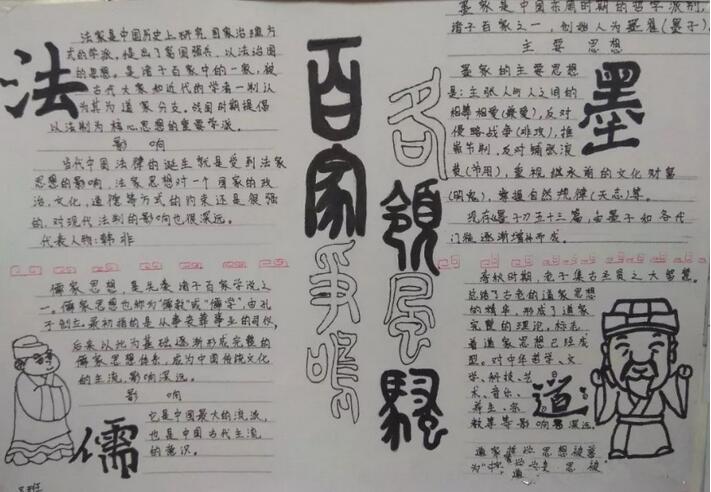 法
法家是中国历史上研究国家治理方
式的学派,提出了富国强兵、以法治国
的思想。是诸子百家中的一家,被
古代大家和近代的学者一削认
为其为道家分支。战国时期提倡
以法制为核心思想的重要学派。
影响
当代中国法律的诞生就是受到法家
思想的影响,法家思想对一个国家的政
治、文化、道德等方式的约束还是很强
的,对现代法制的影响也很深远。
代表人物:韩非
儒家思想,是先秦诸子百家学说之
一。儒家思想也称为“儒教”或“儒学”,由孔
子创立。最初指的是从事丧葬事业的司仪,
后来以此为基础逐渐形成完整的
儒家思想体系,成为中国传统文化
的主流,影响深远。
影响
它是中国最大的流派,
也是中国古代主流
的意识。
儒
百家争鸣
各领风骚
墨家是中国东周时期的哲学派别,
诸子百家之一,创始人为墨翟(墨子)。
主要思想
墨家的主要思想
是:主张人与人之间的
相等相爱(兼爱),反对
侵略战争(非攻),推
崇节制,反对铺张浪
费(节用),重视继承前的文化财富
(明鬼),掌握自然规律(天志)等。
现存《墨子》五十三篇,由墨子和各代
门徒逐渐增补而成。
墨
春秋时期,老子集古圣贤之大智慧。
总结了古老的道家思想
的精华,形成了道家
完整的理论,标志
着道家思想已经成
型。对中年哲学、文
学、科技、艺
术、音乐、
养生、宗
教等等影响深远。
道
道家哲学思想被